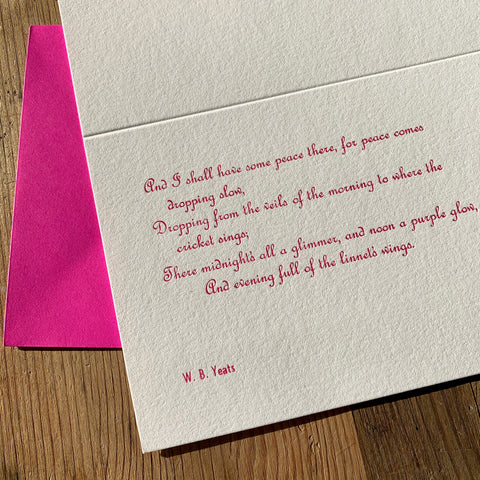 And I shall have some peace there, for peace comes
dropping slow,
Dropping from the veils of the morning to where the
cricket sings;
There midnight's all a glimmer, and noon a purple glow,
And evening full of the linnet's wings.
W. B. Yeats